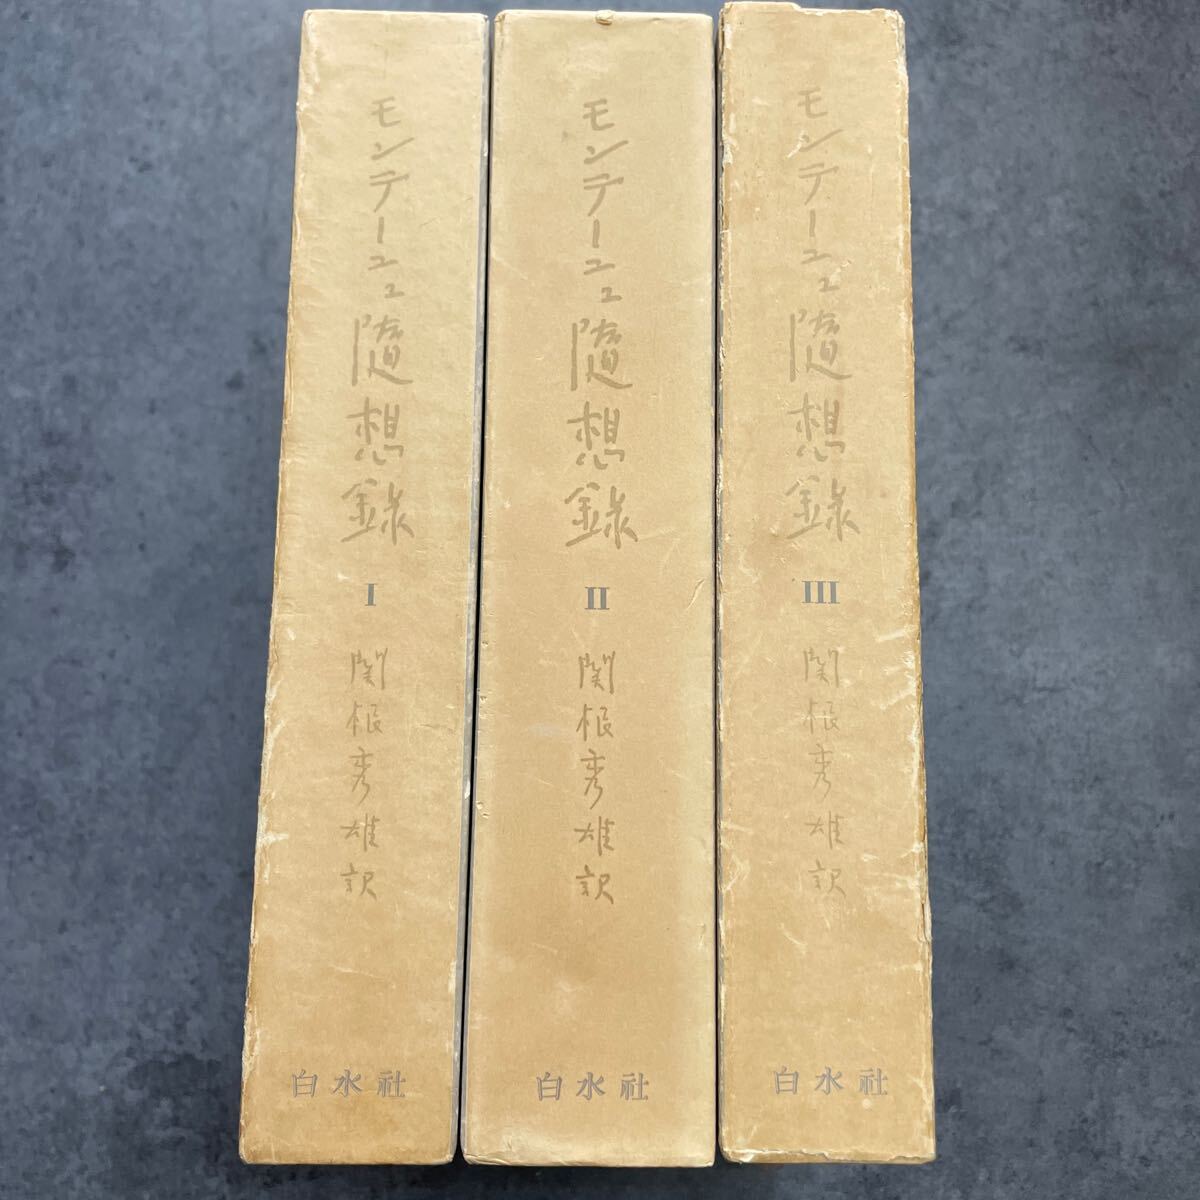 モンテーニュ隨想録
I
関根秀雄訳
白水社
モンテーニュ隨想録
II
関根秀雄訳
白水社
モンテーニュ隨想録
III
関根秀雄訳
白水社